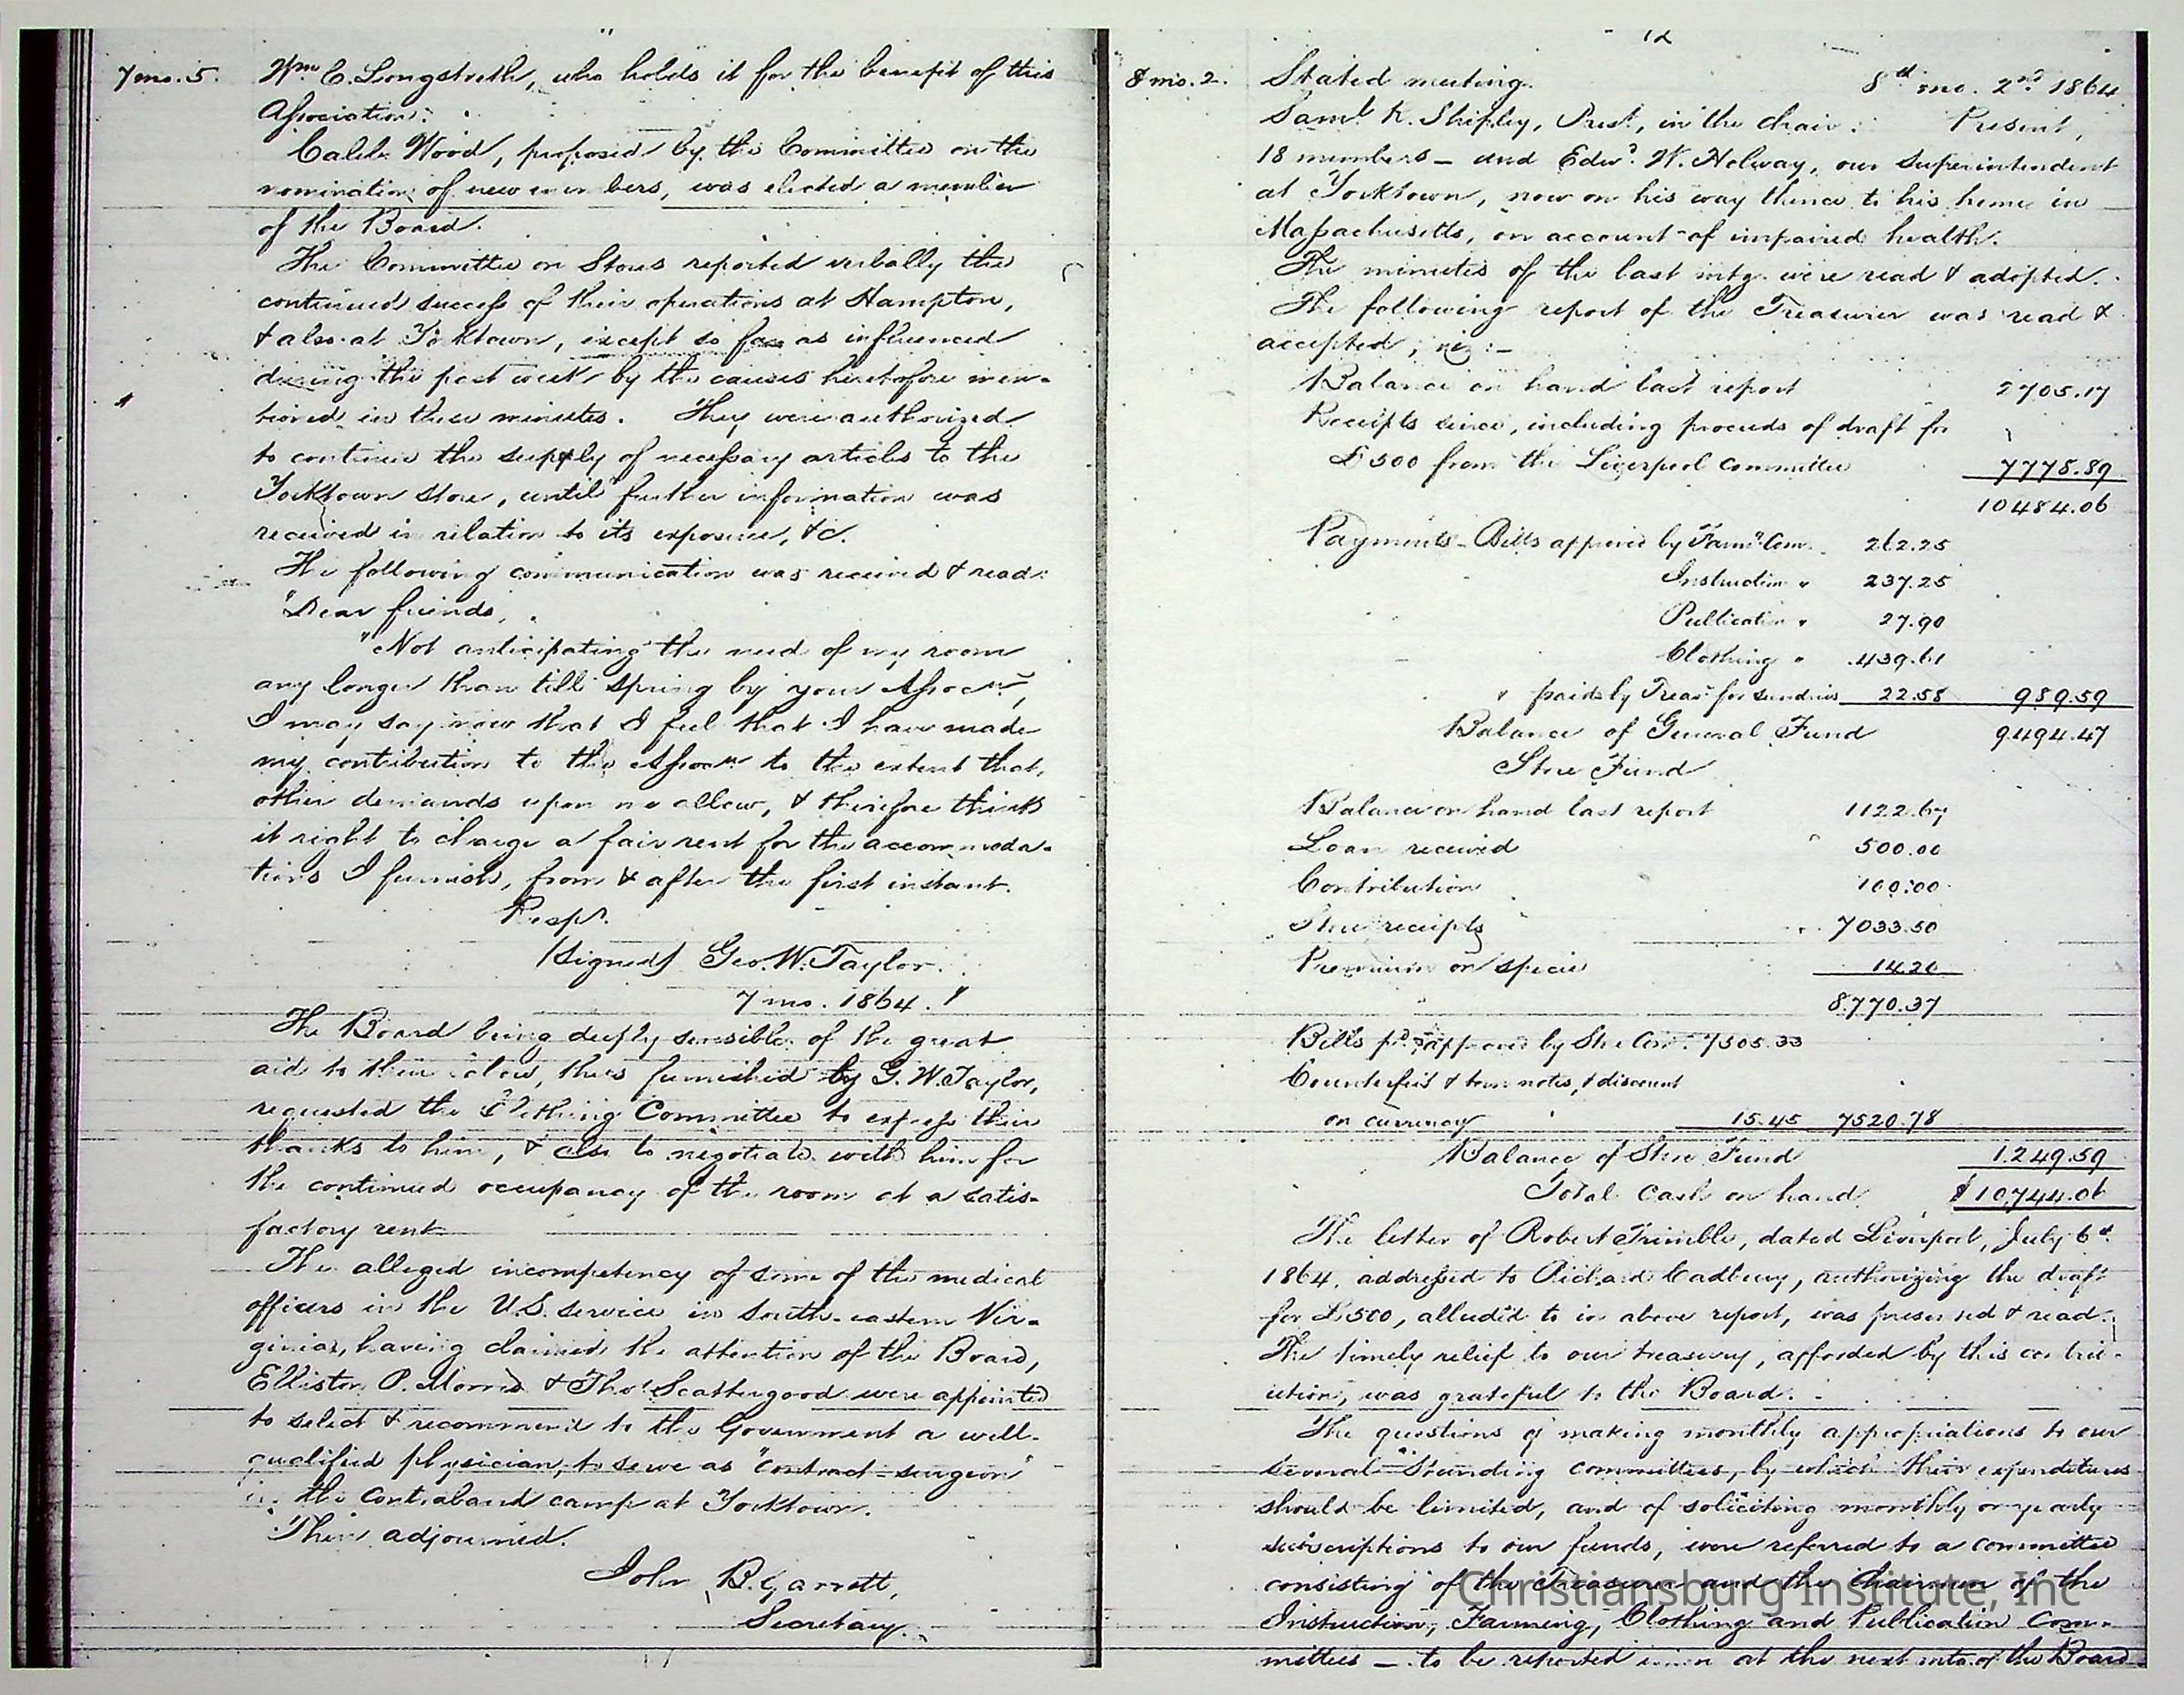 7 mo. 5. Wm E. Longstreth, who holds it for the benefit of this
Association.
Caleb Wood, proposed by the Committee on the
nomination of new members, was elected a member
of the Board.
The Committee on Stores reported verbally the
continued success of their operations at Hampton,
& also at Yorktown, except so far as influenced
during the past week by the causes heretofore men-
tioned in these minutes. They were authorized
to continue the supply of necessary articles to the
Yorktown store, until further information was
received in relation to its exposure, &c.
The following communication was received & read:
"Dear friends,
"Not anticipating the need of my room
any longer than till spring by your Assocn,
I may say now that I feel that I have made
my contribution to the Assocn to the extent that
other demands upon me allow, & therefore think
it right to charge a fair rent for the accommoda-
tions I furnish, from & after the first instant.
Respy.
(Signed) Geo. W. Taylor.
7 mo. 1864."
The Board being deeply sensible of the great
aid to them thus furnished by G. W. Taylor,
requested the Clothing Committee to express their
thanks to him, & also to negotiate with him for
the continued occupancy of the room at a satis-
factory rent.
The alleged incompetency of some of the medical
officers in the U.S. service in south-eastern Vir-
ginia, having claimed the attention of the Board,
Elliston P. Morris & Thos Scattergood were appointed
to select & recommend to the Government a well-
qualified physician, to serve as "contract-surgeon"
in the contraband camp at Yorktown.
Then adjourned.
John B. Garrett,
Secretary.
12
8 mo. 2. Stated meeting. 8th mo. 2nd 1864
Saml R. Shipley, Prest, in the chair. Present,
18 members - and Edwd. W. Holway, our Superintendent
at Yorktown, now on his way thence to his home in
Massachusetts, on account of impaired health.
The minutes of the last mtg. were read & adopted.
The following report of the Treasurer was read &
accepted, viz:-
Balance on hand last report 2705.17
Receipts since, including proceeds of draft for
£500 from the Liverpool Committee 7778.89
10484.06
Payments - Bills approved by Farmg Com. 262.25
Instruction " 237.25
Publication " 27.90
Clothing " 439.61
" paid by Treasr for sundries 22.58 989.59
Balance of General Fund 9494.47
Store Fund
Balance on hand last report 1122.67
Loan received 500.00
Contribution 100.00
Store receipts 7033.50
Premium on specie 14.20
8770.37
Bills pd. approved by Store Com. 7505.33
Counterfeit & torn notes, & discount
on currency 15.45 7520.78
Balance of Store Fund 1249.59
Total Cash on hand $10,744.06
The letter of Robert Trimble, dated Liverpool, July 6th
1864, addressed to Richard Cadbury, authorizing the draft
for £500, alluded to in above report, was presented & read.
The timely relief to our treasury, afforded by this contrib-
ution, was grateful to the Board.
The questions of making monthly appropriations to our
several Standing committees, by which their expenditures
should be limited, and of soliciting monthly or yearly
subscriptions to our funds, were referred to a committee
consisting of the Treasurer and the Chairmen of the
Instruction, Farming, Clothing and Publication Com-
mittees - to be reported upon at the next mtg. of the Board
Christiansburg Institute, Inc